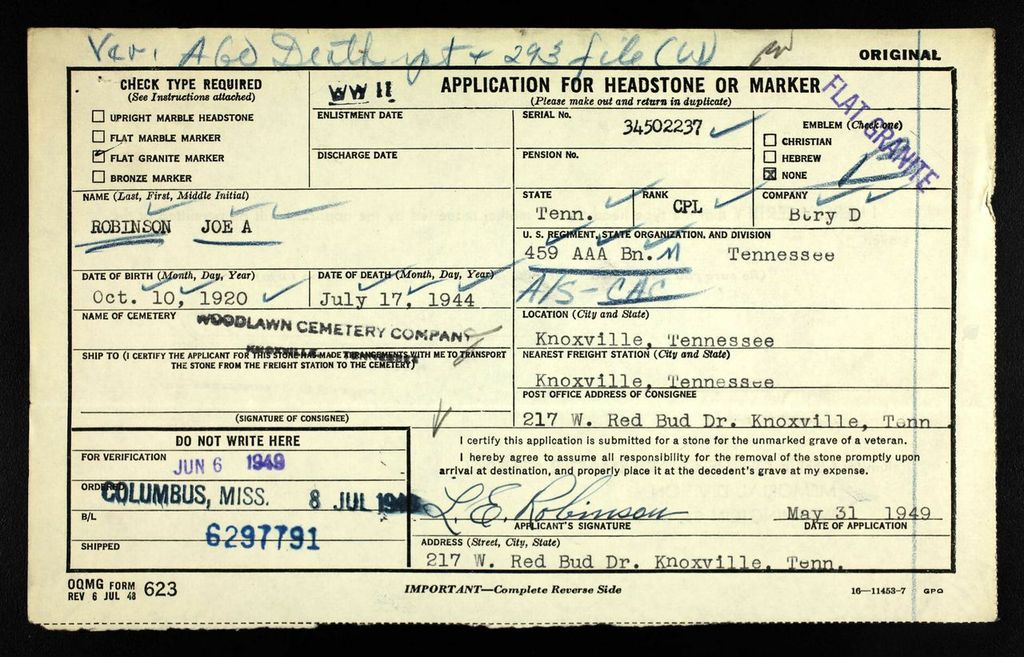 Ver. AGO Death rpt + 293 file (W)
ORIGINAL
CHECK TYPE REQUIRED
(See Instructions attached)
UPRIGHT MARBLE HEADSTONE
FLAT MARBLE MARKER
FLAT GRANITE MARKER
BRONZE MARKER
WW II
ENLISTMENT DATE
DISCHARGE DATE
APPLICATION FOR HEADSTONE OR MARKER
(Please make out and return in duplicate)
SERIAL No.
34502237
PENSION No.
EMBLEM (Check one)
CHRISTIAN
HEBREW
NONE
FLAT GRANITE
NAME (Last, First, Middle Initial)
ROBINSON JOE A
STATE
Tenn.
RANK
CPL
COMPANY
Btry D
U. S. REGIMENT, STATE ORGANIZATION, AND DIVISION
459 AAA Bn. M Tennessee
A/S - CAC
DATE OF BIRTH (Month, Day, Year)
Oct. 10, 1920
DATE OF DEATH (Month, Day, Year)
July 17, 1944
NAME OF CEMETERY
WOODLAWN CEMETERY COMPANY
KNOXVILLE TENNESSEE
LOCATION (City and State)
Knoxville, Tennessee
SHIP TO (I CERTIFY THE APPLICANT FOR THIS STONE HAS MADE ARRANGEMENTS WITH ME TO TRANSPORT
THE STONE FROM THE FREIGHT STATION TO THE CEMETERY)
NEAREST FREIGHT STATION (City and State)
Knoxville, Tennessee
(SIGNATURE OF CONSIGNEE)
POST OFFICE ADDRESS OF CONSIGNEE
217 W. Red Bud Dr. Knoxville, Tenn
DO NOT WRITE HERE
FOR VERIFICATION
JUN 6 1949
ORDERED
COLUMBUS, MISS. 8 JUL 1949
B/L
6297791
SHIPPED
I certify this application is submitted for a stone for the unmarked grave of a veteran.
I hereby agree to assume all responsibility for the removal of the stone promptly upon
arrival at destination, and properly place it at the decedent's grave at my expense.
L. E. Robinson
APPLICANT'S SIGNATURE
May 31 1949
DATE OF APPLICATION
ADDRESS (Street, City, State)
217 W. Red Bud Dr. Knoxville, Tenn.
OQMG FORM 623
REV 6 JUL 48
IMPORTANT—Complete Reverse Side
16—11453-7 GPO